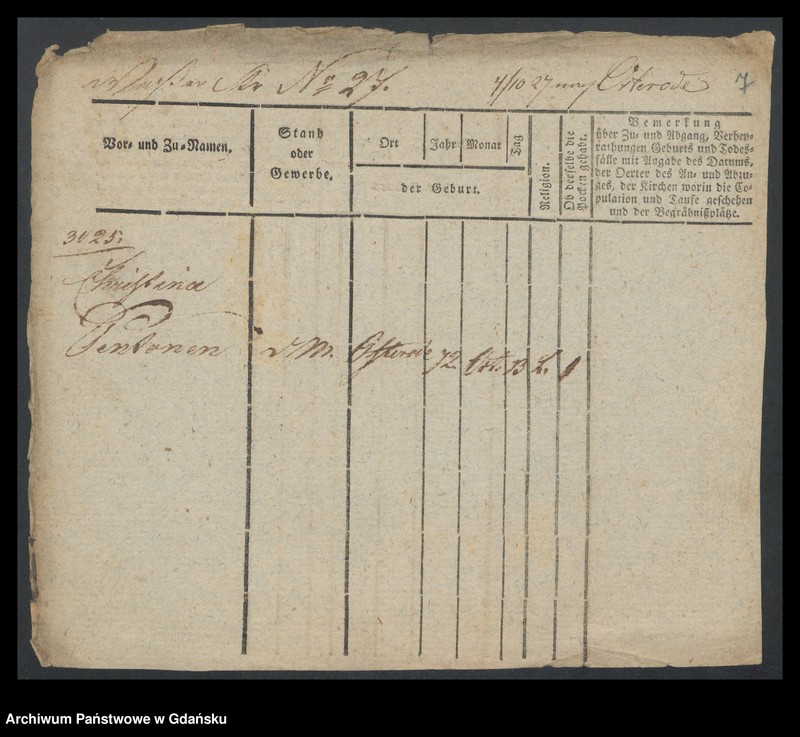 No 27. 4/10 27 nach Osterode 7
Vor- und Zu-Namen.
Stand
oder
Gewerbe.
Ort Jahr Monat Tag
der Geburt.
Religion.
Ob derselbe die
Pocken gehabt.
Bemerkung
über Zu- und Abgang, Verhey-
rathungen Geburts und Todes-
fälle mit Angabe des Datums,
der Oerter des An- und Abzu-
ges, der Kirchen worin die Co-
pulation und Taufe geschehen
und der Begräbnißplätze.
3025.
Christina
Pentonen d. M. Osterode 72 Oct. 13 L. 1
Archiwum Państwowe w Gdańsku